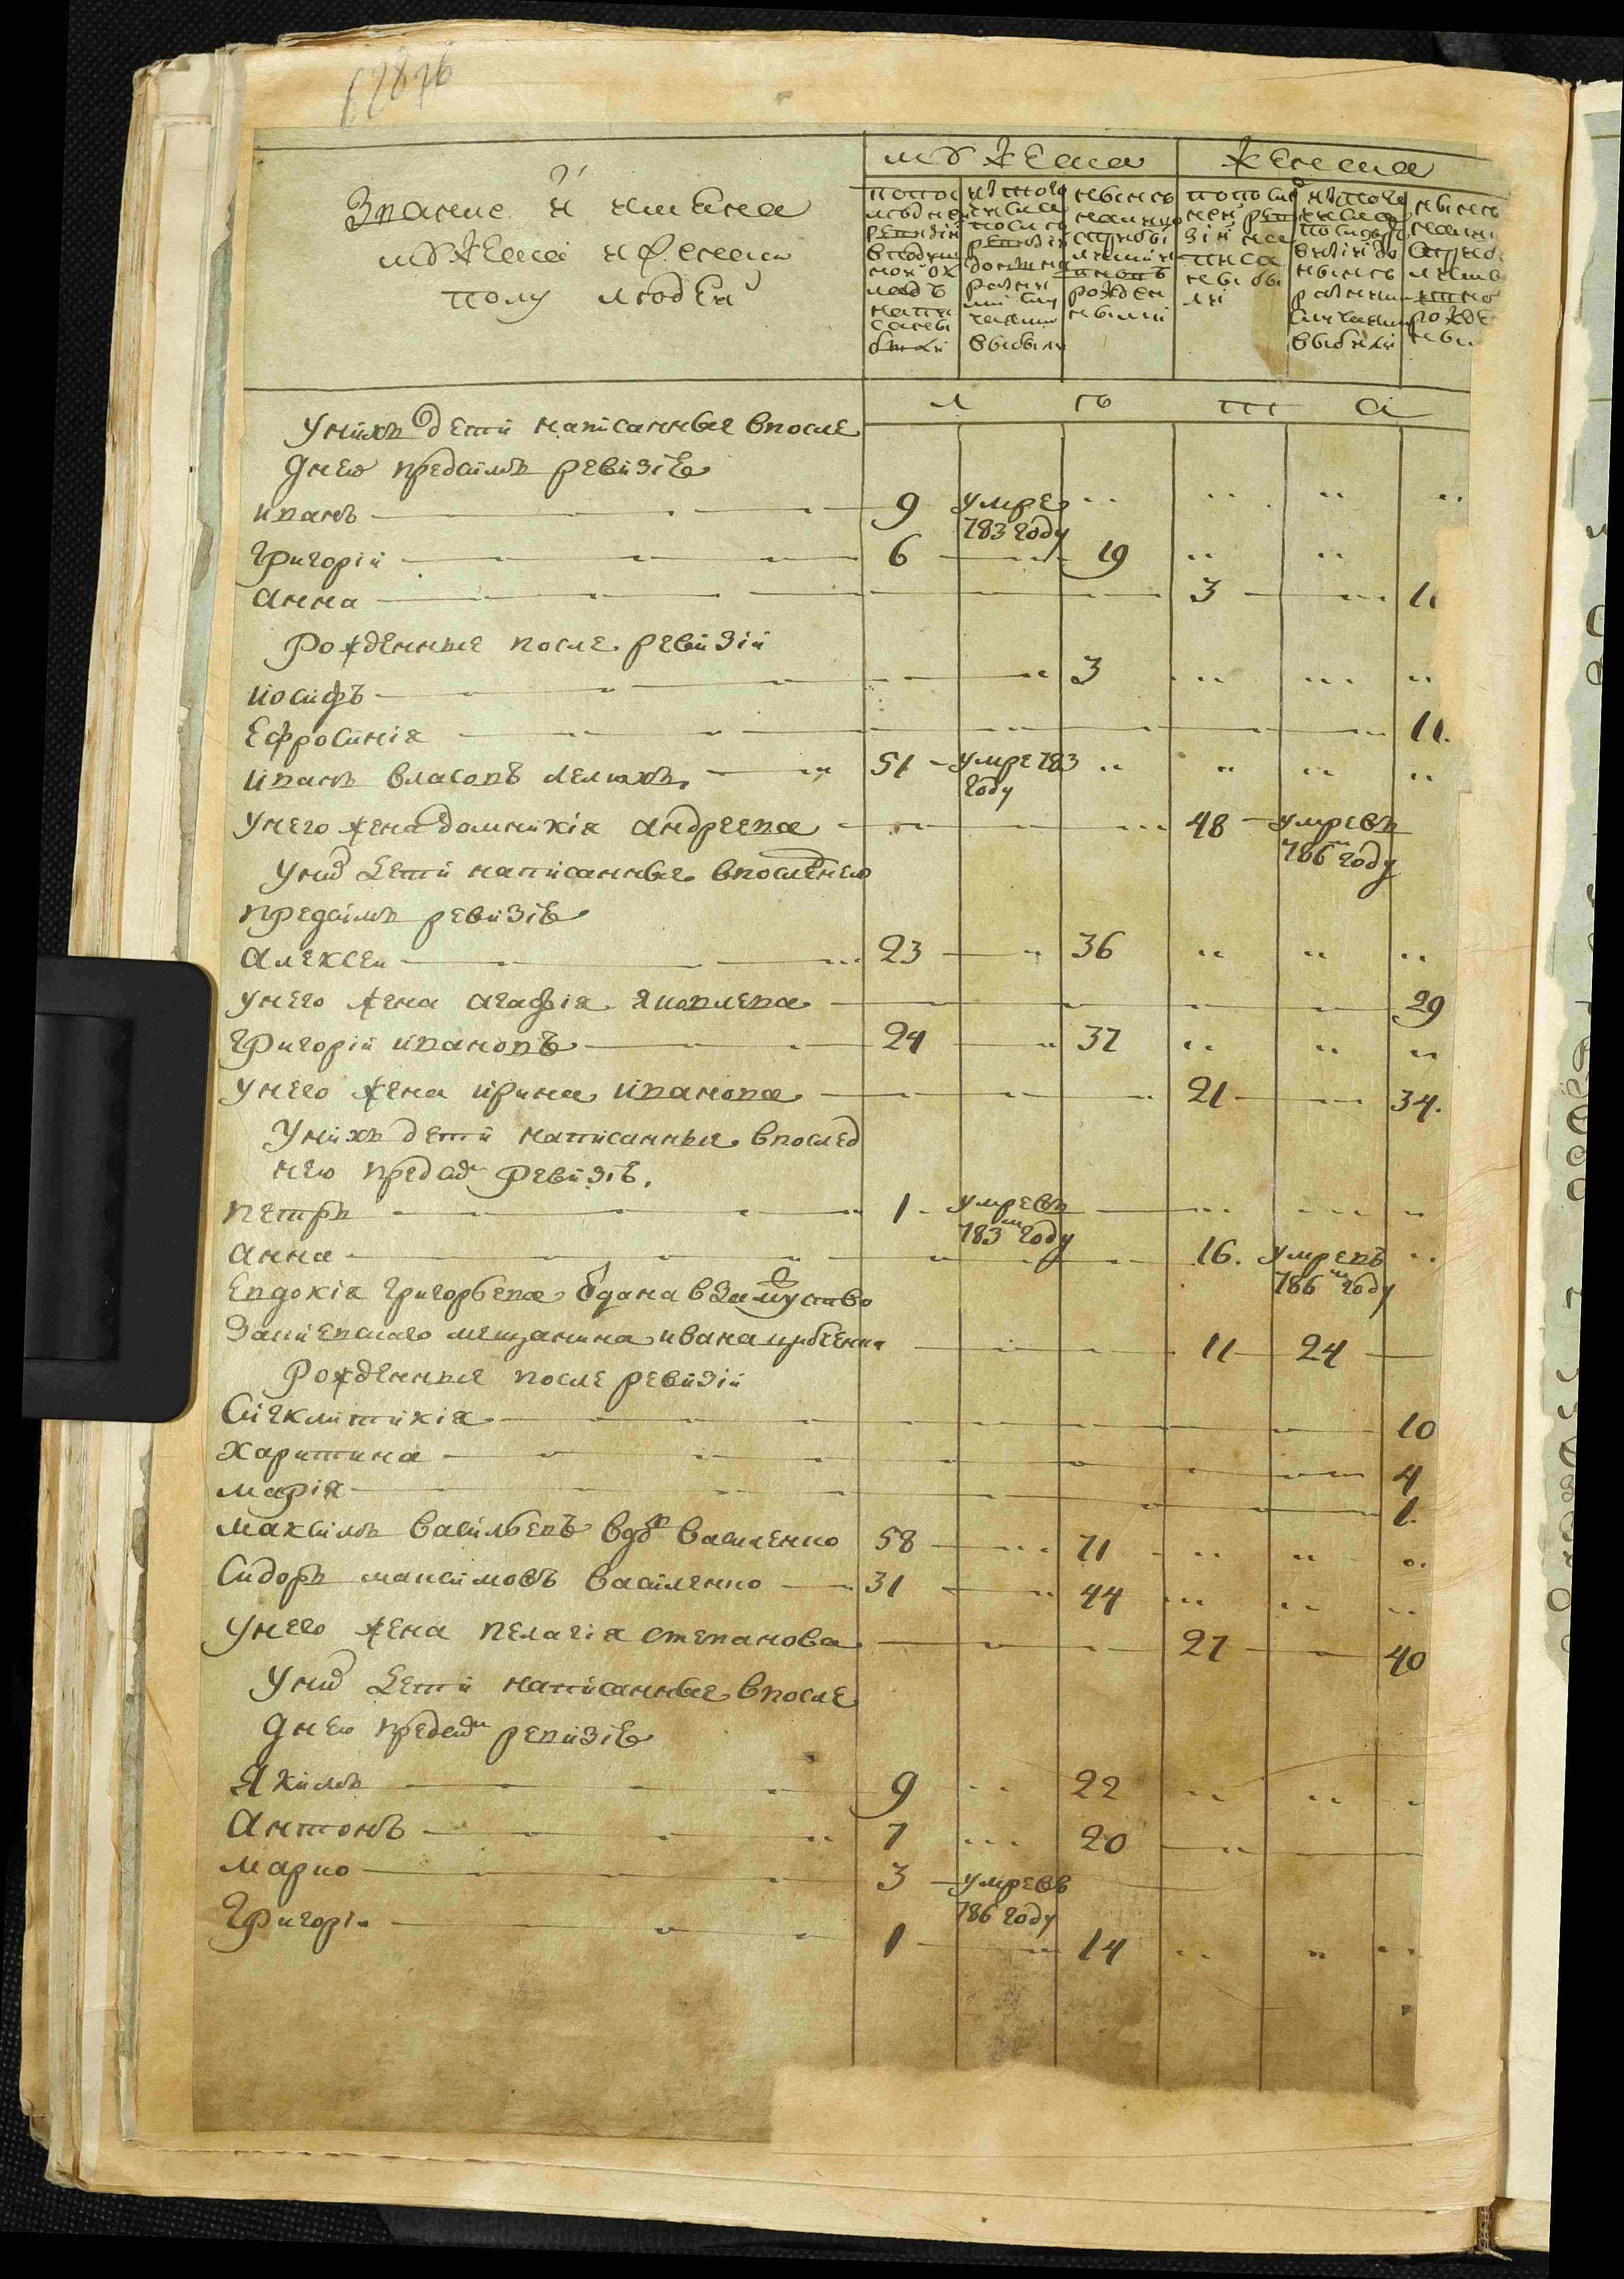 12876
Звание и имяна
мужеска и женска
полу людей
мужеска
женска
по последней ревизіи в подушной оклад написаны были
из того числа после ревизіи до ныне разными случаями выбыли
ныне налицо с прибылыми и вновь рожденными
по последней ревизіи написаны были
из того числа после ревизіи до ныне разными случаями выбыли
ныне налицо
л е т а
У нихъ дети написанные в после
днею предъ симъ ревизіею
Иванъ 9 умре
783 году
Григорій 6 19
Анна 3
Рожденные после ревизій
Иосифъ 3
Ефросинія 11.
Иванъ Власовъ 51 умре 783
году
У него жена Домникія Андреева 48 умре въ
786м году
У них дети написанные в последнею
предъ симъ ревизіею
Алексей 23 36
У него жена Агафія Яковлева 29
Григорій Ивановъ 24 37
У него жена Ирина Иванова 21 34.
У нихъ дети написанные в послед
нею предъ сим ревизіею.
Петръ 1 умре въ
783м году
Анна 16. умре въ
786м году
Евдокія Григорьева одана в замуство
мещанина Ивана 11 24
Рожденные после ревизій
Сигклитикія 10
Харитина 4
Марія 1.
Максимъ Васильевъ вдов Василенко 58 71
Сидоръ Максимовъ Василенко 31 44
У него жена Пелагія Степанова 27 40
У них дети написанные в после
днею предъ сим ревизіею
Якимъ 9 22
Антонъ 7 20
Марко 3 умре въ
786 году
Григорій 1 14